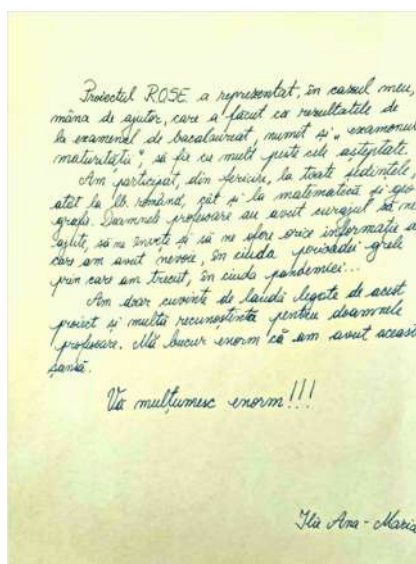 Proiectul ROSE a reprezentat, în cazul meu,
mâna de ajutor, care a făcut ca rezultatele de
la examenul de bacalaureat, numit și „examenul
maturității”, să fie cu mult peste cele așteptate.
Am participat, din fericire, la toate ședințele,
atât la lb. română, cât și la matematică și geo
grafie. Doamnele profesoare au avut curajul să ne
ajute, să ne învețe și să ne ofere orice informație de
care am avut nevoie, în ciuda perioadei grele
prin care am trecut, în ciuda pandemiei...
Am doar cuvinte de laudă legate de acest
proiect și multă recunoștință pentru doamnele
profesoare. Mă bucur enorm că am avut această
șansă.
Vă mulțumesc enorm!!!
Ilie Ana-Maria